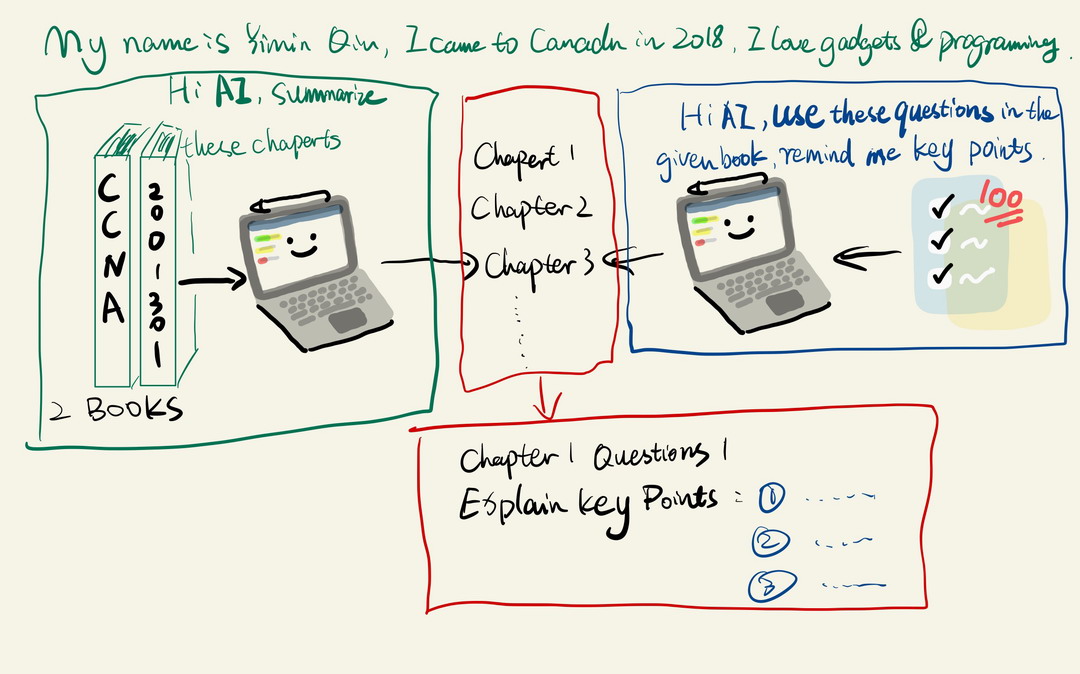 My name is Yimin Qin, I came to Canada in 2018, I love gadgets & programing.
Hi AI, summarize
these chaperts
CCNA
200-301
2 BOOKS
Chapert 1
Chapter 2
Chapter 3
Hi AI, use these questions in the
given book, remind me key points.
100
Chapter 1 Questions 1
Explain key Points : ①
②
③